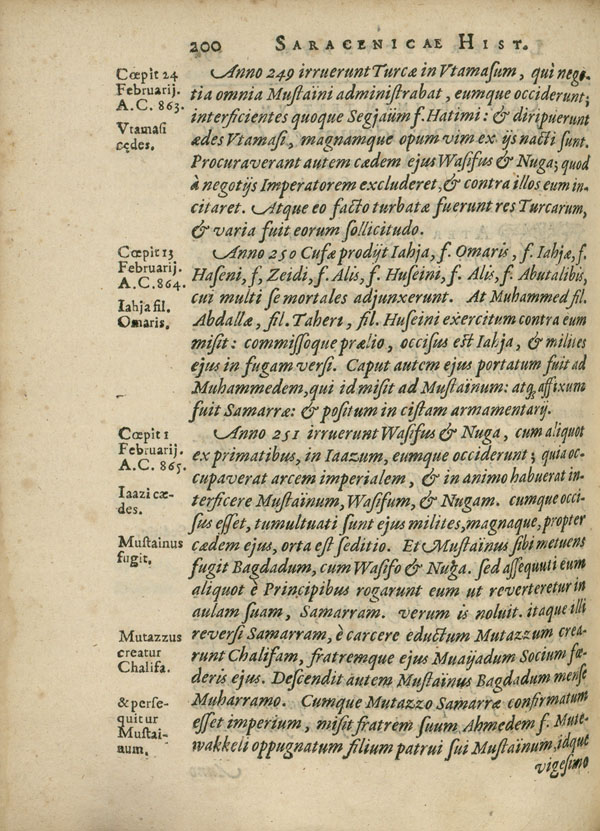 200 SARACENICAE HIST.
Cœpit 24
Februarij.
A.C. 863.
Vtamasi
cędes.
Anno 249 irruerunt Turcæ in Vtamasum, qui nego-
tia omnia Mustaïni administrabat, eumque occiderunt;
interficientes quoque Segjaüm f. Hatimi: & diripuerunt
ædes Vtamasi, magnamque opum vim ex ijs nacti sunt.
Procuraverant autem cædem ejus Wasifus & Nuga; quod
à negotijs Imperatorem excluderet, & contra illos eum in-
citaret. Atque eo facto turbatæ fuerunt res Turcarum,
& varia fuit eorum sollicitudo.
Cœpit 13
Februarij.
A.C. 864.
Iahja fil.
Omaris.
Anno 250 Cufæ prodijt Iahja, f. Omaris, f. Iahjæ, f.
Haseni, f, Zeidi, f. Alis, f. Huseini, f. Alis, f. Abutalibis,
cui multi se mortales adjunxerunt. At Muhammed fil.
Abdallæ, fil. Taheri, fil. Huseini exercitum contra eum
misit: commissoque prælio, occisus est Iahja, & milites
ejus in fugam versi. Caput autem ejus portatum fuit ad
Muhammedem, qui id misit ad Mustaïnum: atq; affixum
fuit Samarræ: & positum in cistam armamentarij.
Cœpit 1
Februarij.
A.C. 865.
Iaazi cæ-
des.
Mustainus
fugit.
Mutazzus
creatur
Chalifa.
& perse-
quitur
Mustai-
num.
Anno 251 irruerunt Wasifus & Nuga, cum aliquot
ex primatibus, in Iaazum, eumque occiderunt; quia oc-
cupaverat arcem imperialem, & in animo habuerat in-
terficere Mustaïnum, Wasifum, & Nugam. cumque occi-
sus esset, tumultuati sunt ejus milites, magnaque, propter
cædem ejus, orta est seditio. Et Mustaïnus sibi metuens
fugit Bagdadum, cum Wasifo & Nuga. sed assequuti eum
aliquot è Principibus rogarunt eum ut reverteretur in
aulam suam, Samarram. verum is noluit. itaque illi
reversi Samarram, è carcere eductum Mutazzum crea-
runt Chalifam, fratremque ejus Muaijadum Socium fœ-
deris ejus. Descendit autem Mustaïnus Bagdadum mense
Muharramo. Cumque Mutazzo Samarræ confirmatum
esset imperium, misit fratrem suum Ahmedem f. Mute-
wakkeli oppugnatum filium patrui sui Mustaïnum, idque
vigesimo